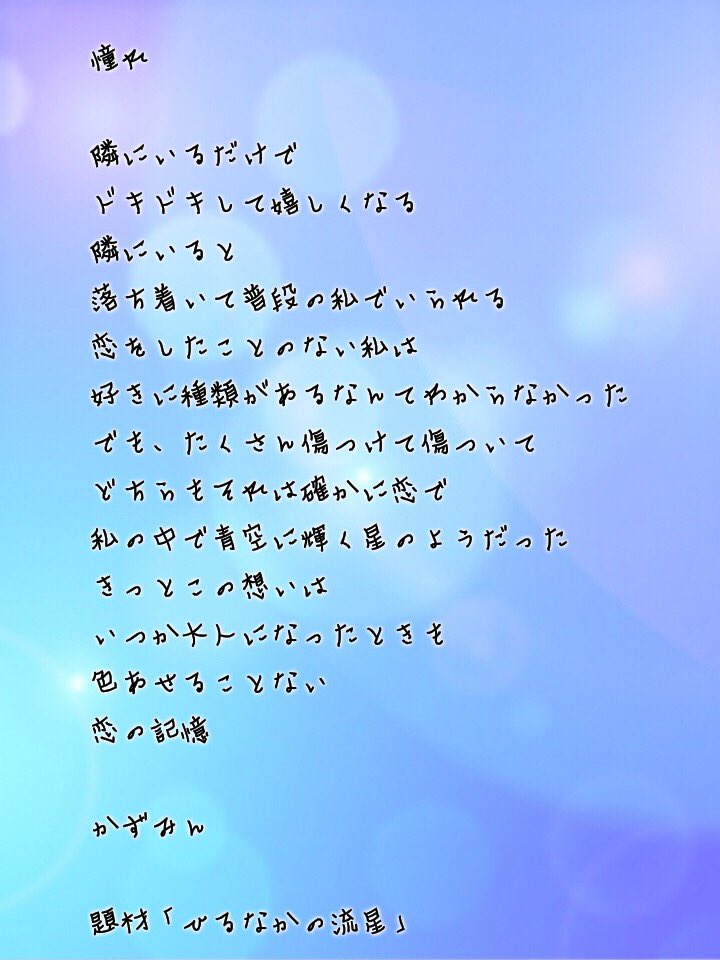 憧れ
隣にいるだけで
ドキドキして嬉しくなる
隣にいると
落ち着いて普段の私でいられる
恋をしたことのない私は
好きに種類があるなんてわからなかった
でも、たくさん傷つけて傷ついて
どちらもそれは確かに恋で
私の中で青空に輝く星のようだった
きっとこの想いは
いつか大人になったときも
色あせることない
恋の記憶
かずみん
題材「ひるなかの流星」